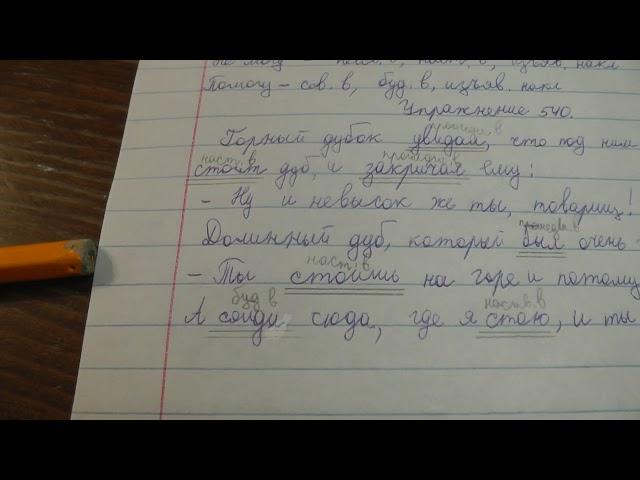 Не могу – наст. в, изъяв. накл
Помогу – сов. в, буд. в, изъяв. накл
Упражнение 540.
прошедш. в
Горный дубок увидал, что под ним
наст. в прошедш. в
стоит дуб, и закричал ему:
– Ну и невысок же ты, товарищ!
прошедш. в
Долинный дуб, который был очень
наст. в
– Ты стоишь на горе и потому
буд в наст. в
А сойди сюда, где я стою, и ты